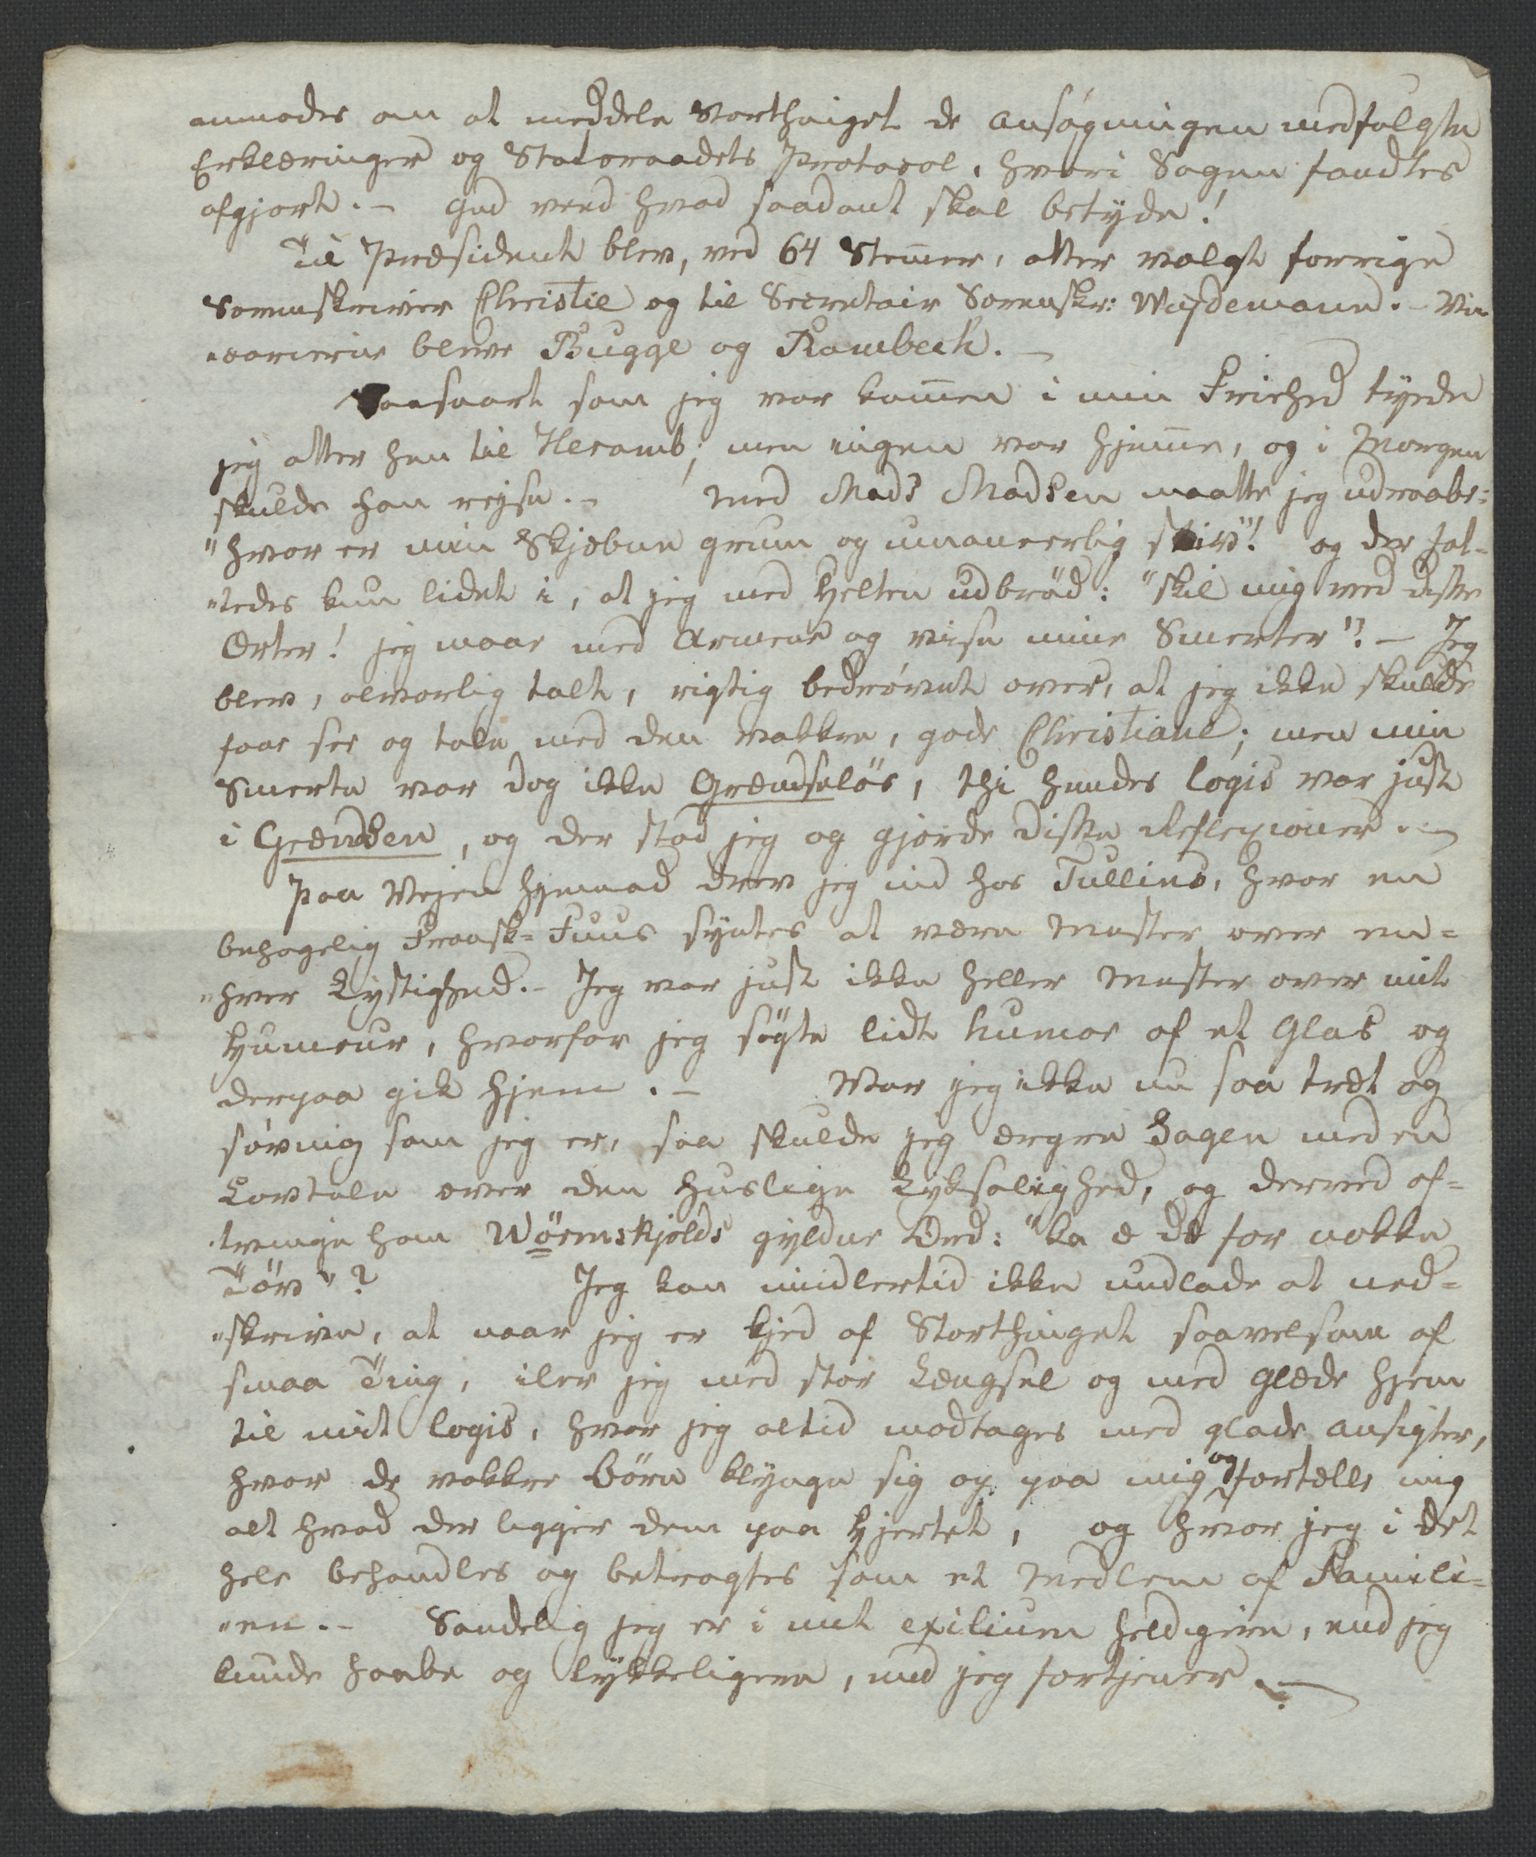 anmodes om at meddele Storthinget de Ansøgningen medfulgte
Erklæringer og Statsraadets Protocol, hvori Sagen fandtes
afgjort. – Gud veed hvad saadant skal betyde!
Til Præsident blev, ved 64 Stem̅er, atter valgt forrige
Sorenskriver Christie og til Secretair Sorenskr: Weydemann. – Vi-
"carierne bleve Bugge og Rambech. –
Saasnart som jeg var kom̅en i min Friehed tyede
jeg atter hen til Heramb; men ingen var hjem̅e, og i Morgen
skulde han rejse. – Med Mads Madsen maatte jeg udraabe:
"hvor er min Skjebne grum og umaneerlig stiv"! og der fat-
"tedes kun lidet i, at jeg med Helten udbrød: "skil mig ved disse
Orter! jeg maae med Armene og visse mine Smerter"! – Jeg
blev, alvorlig talt, rigtig bedrøvet over, at jeg ikke skulde
faae see og tale med den vakkre, gode Christiane; men min
Smerte var dog ikke Grændseløs, thi hendes Logis var just
i Grændsen, og der stod jeg og gjorde disse Reflexioner. –
Paa Vejen hjemad drev jeg ind hos Tullins, hvor en
behagelig Fraask-Fuus syntes at være Mester over en-
"hver Lystighed. – Jeg var just ikke heller Mester over mit
Humeur, hvorfor jeg søgte lidt humor af et Glas og
derpaa gik hjem. – Var jeg ikke nu saa træt og
søvnig som jeg er, saa skulde jeg ærgre Hagen med en
Lovtale over den huslige Lyksalighed, og derved af-
"tvinge ham Wörmskjolds gyldne Ord: "ka e de for nokke
Töv"? Jeg kan imidlertid ikke undlade at ned-
"skrive, at naar jeg er kjed af Storthinget saavelsom af
smaa Ting, iler jeg med stor Længsel og med Glæde hjem
til mit Logis, hvor jeg altid modtages med glade Ansigter,
hvor de vakkre Börn klynge sig op paa mig og fortælle mig
alt hvad der ligger dem paa Hjertet, og hvor jeg i det
hele behandles og betragtes som et Medlem af Famili-
"en. – Sandelig jeg er i mit exilium heldigere, end jeg
kunde haabe og lykkeligere, end jeg fortjener. –